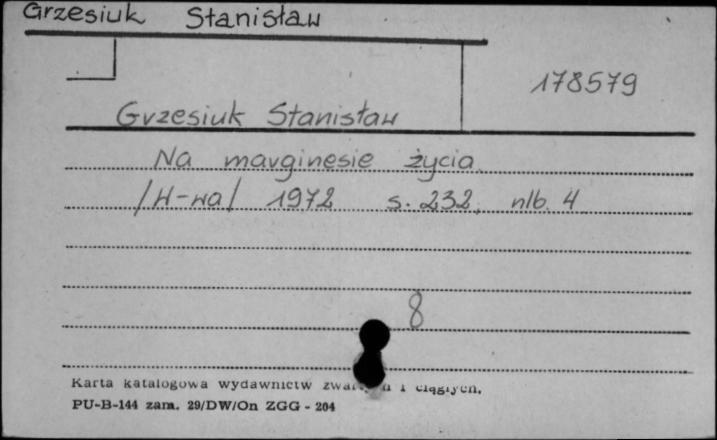 Grzesiuk Stanisław
178579
Grzesiuk Stanisław
Na marginesie życia
/W-wa/ 1972 s. 232, nlb. 4
8
Karta katalogowa wydawnictw i ciągłych.
PU-B-144 zam. 29/DW/On ZGG - 204